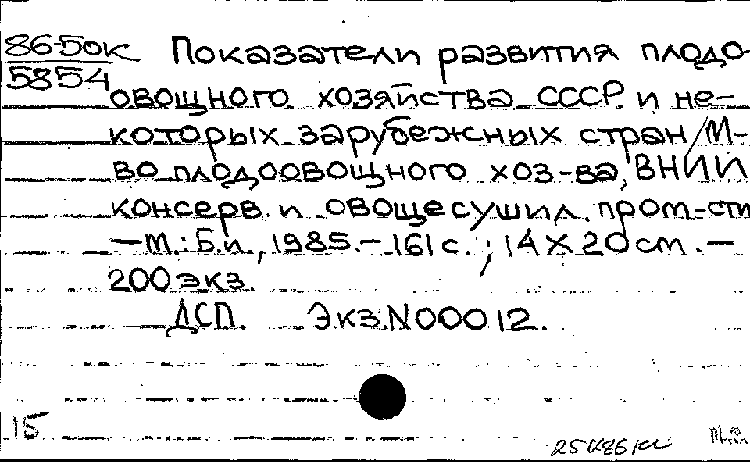 86-50к Показатели развития плодо
5854 овощного хозяйства СССР и не-
которых зарубежных стран/М-
во плодоовощного хоз-ва, ВНИИ
консерв. и овощесушил. пром-сти
—М.: Б.и., 1985.— 161 с.; 14 X 20 см.—
200 экз.
ДСП. Экз.N00012.
15